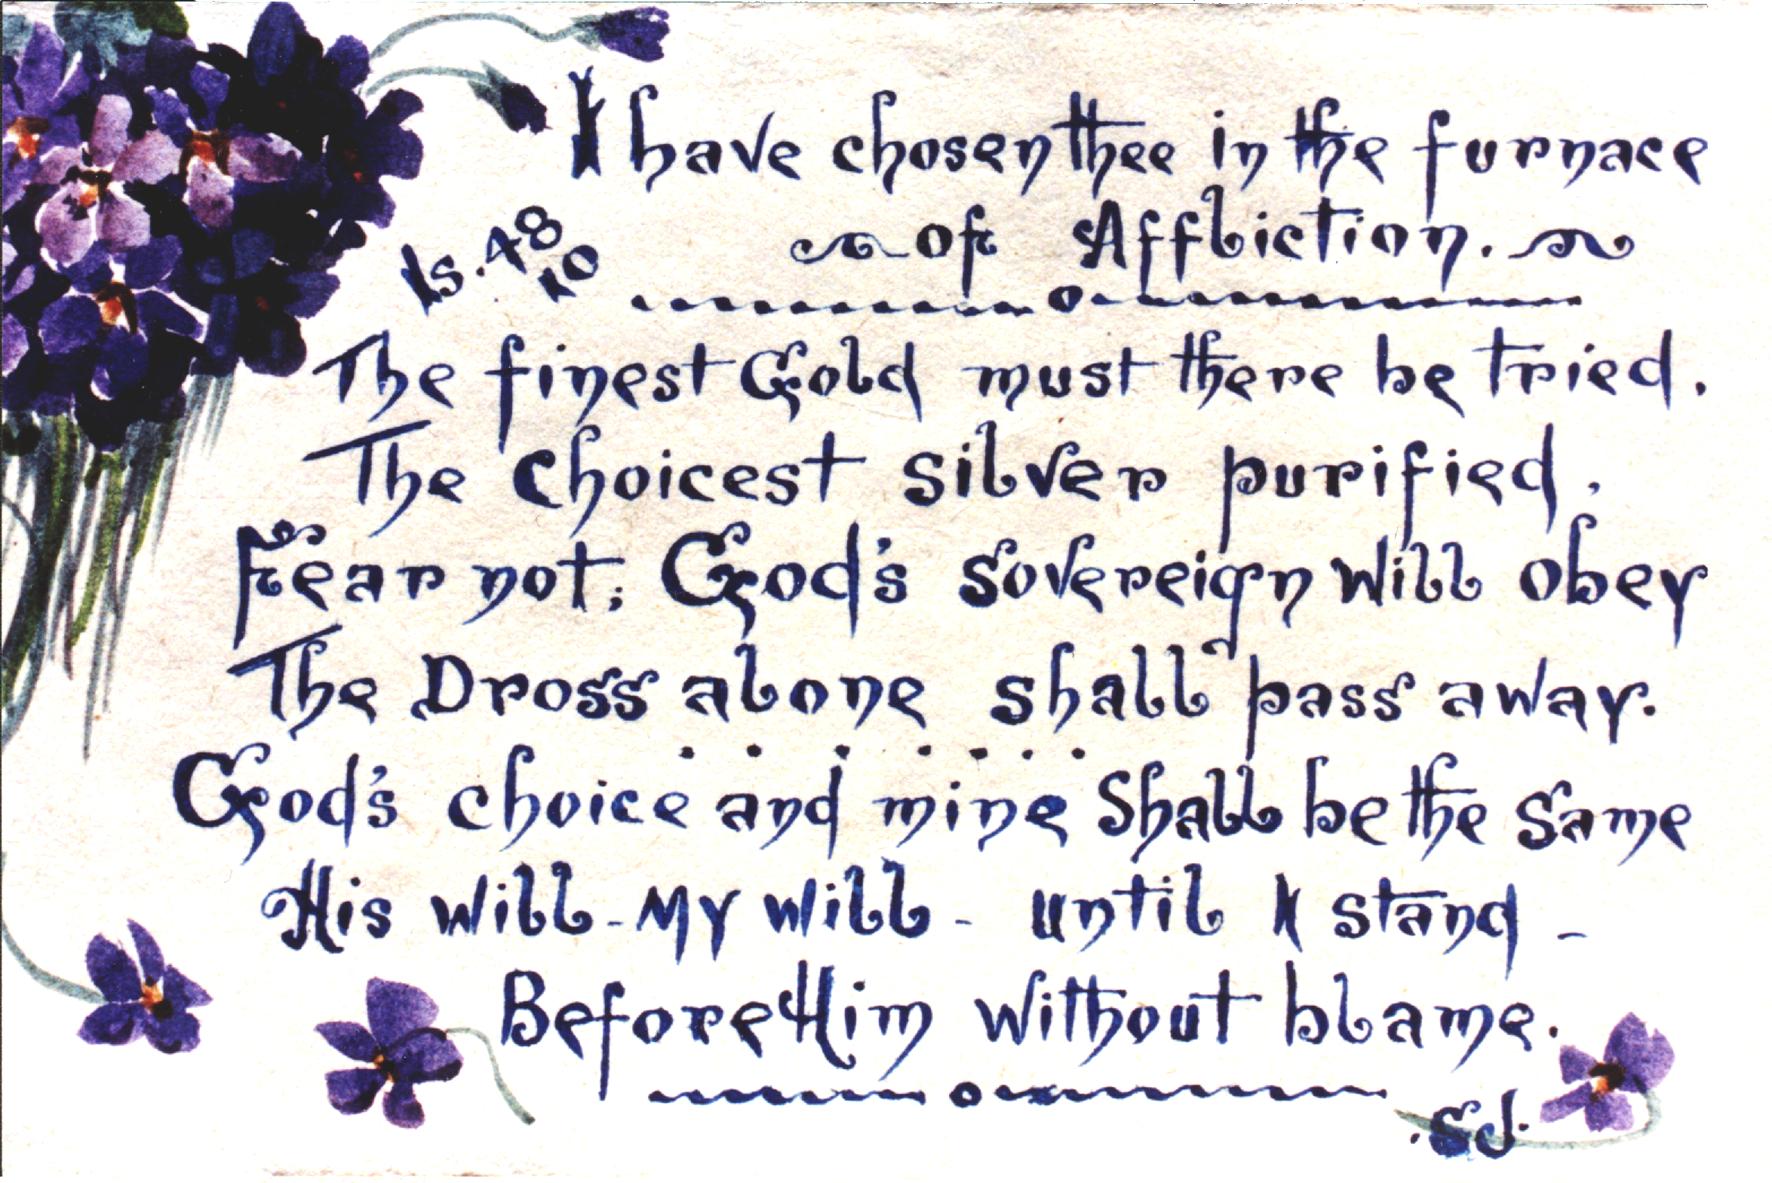 I have chosen thee in the furnace
of Affliction.
Is. 48
10
The finest Gold must there be tried.
The choicest silver purified,
Fear not; God's sovereign will obey
The Dross alone shall pass away.
God's choice and mine Shall be the same
His will - My will - until I stand -
Before Him without blame.
.SJ.